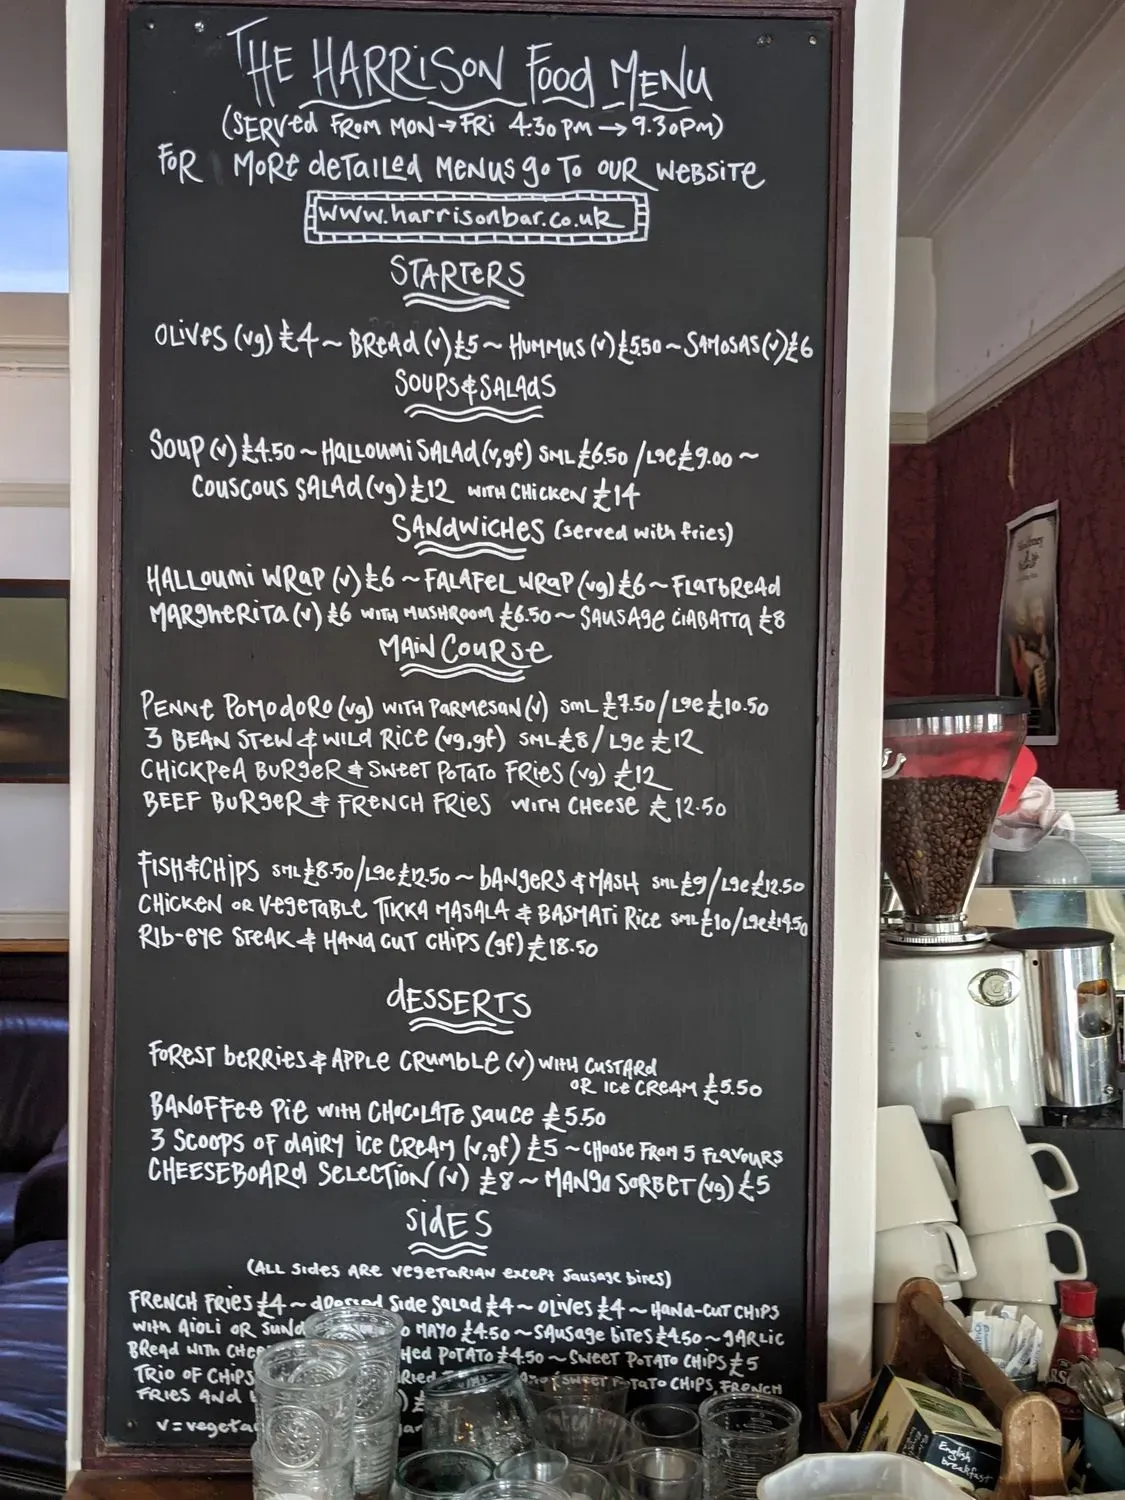 THE HARRISON FOOD MENU
(SERVED FROM MON→FRI 4.30PM → 9.30PM)
FOR MORE DETAILED MENUS GO TO OUR WEBSITE
www.harrisonbar.co.uk
STARTERS
OLIVES (vg) £4 ~ BREAD (v) £5 ~ HUMMUS (v) £5.50 ~ SAMOSAS (v) £6
SOUPS & SALADS
SOUP (v) £4.50 ~ HALLOUMI SALAD (v,gf) SML £6.50 / LGE £9.00 ~
COUSCOUS SALAD (vg) £12 WITH CHICKEN £14
SANDWICHES (served with fries)
HALLOUMI WRAP (v) £6 ~ FALAFEL WRAP (vg) £6 ~ FLATBREAD
MARGHERITA (v) £6 WITH MUSHROOM £6.50 ~ SAUSAGE CIABATTA £8
MAIN COURSE
PENNE POMODORO (vg) WITH PARMESAN (v) SML £7.50 / LGE £10.50
3 BEAN STEW & WILD RICE (vg,gf) SML £8 / LGE £12
CHICKPEA BURGER & SWEET POTATO FRIES (vg) £12
BEEF BURGER & FRENCH FRIES WITH CHEESE £12.50
FISH & CHIPS SML £8.50 / LGE £12.50 ~ BANGERS & MASH SML £9 / LGE £12.50
CHICKEN OR VEGETABLE TIKKA MASALA & BASMATI RICE SML £10 / LGE £14.50
RIB-EYE STEAK & HAND CUT CHIPS (gf) £18.50
DESSERTS
FOREST BERRIES & APPLE CRUMBLE (v) WITH CUSTARD
OR ICE CREAM £5.50
BANOFFEE PIE WITH CHOCOLATE SAUCE £5.50
3 SCOOPS OF DAIRY ICE CREAM (v,gf) £5 ~ CHOOSE FROM 5 FLAVOURS
CHEESEBOARD SELECTION (v) £8 ~ MANGO SORBET (vg) £5
SIDES
(ALL SIDES ARE VEGETARIAN EXCEPT SAUSAGE BITES)
FRENCH FRIES £4 ~ DRESSED SIDE SALAD £4 ~ OLIVES £4 ~ HAND-CUT CHIPS
WITH AIOLI OR MAYO £4.50 ~ SAUSAGE BITES £4.50 ~ GARLIC
BREAD WITH POTATO £4.50 ~ SWEET POTATO CHIPS £5
TRIO OF CHIPS SWEET POTATO CHIPS, FRENCH
FRIES AND
v = 
English
breakfast